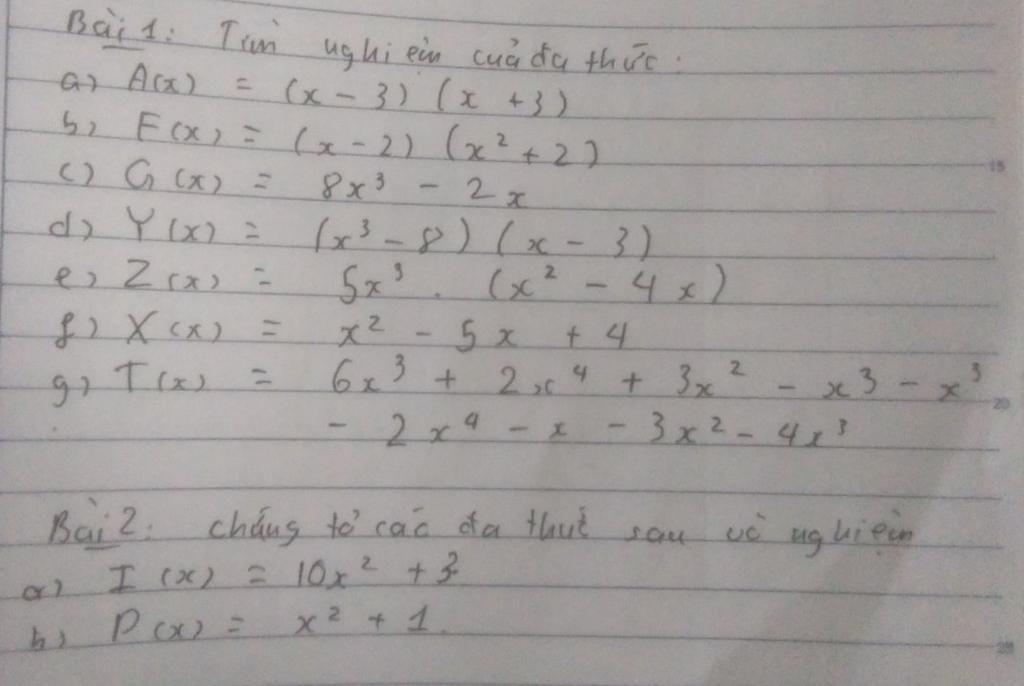 Bài 1: Tìm nghiệm của đa thức.
a) A(x) = (x - 3) (x + 3)
b) F(x) = (x - 2) (x² + 2)
c) G(x) = 8x³ - 2x
d) Y(x) = (x³ - 8) (x - 3)
e) Z(x) = 5x³ . (x² - 4x)
f) X(x) = x² - 5x + 4
g) T(x) = 6x³ + 2x⁴ + 3x² - x³ - x³
- 2x⁴ - x - 3x² - 4x³
20
Bài 2: chứng tỏ các đa thức sau vô nghiệm
a) I(x) = 10x² + 3
b) P(x) = x² + 1.